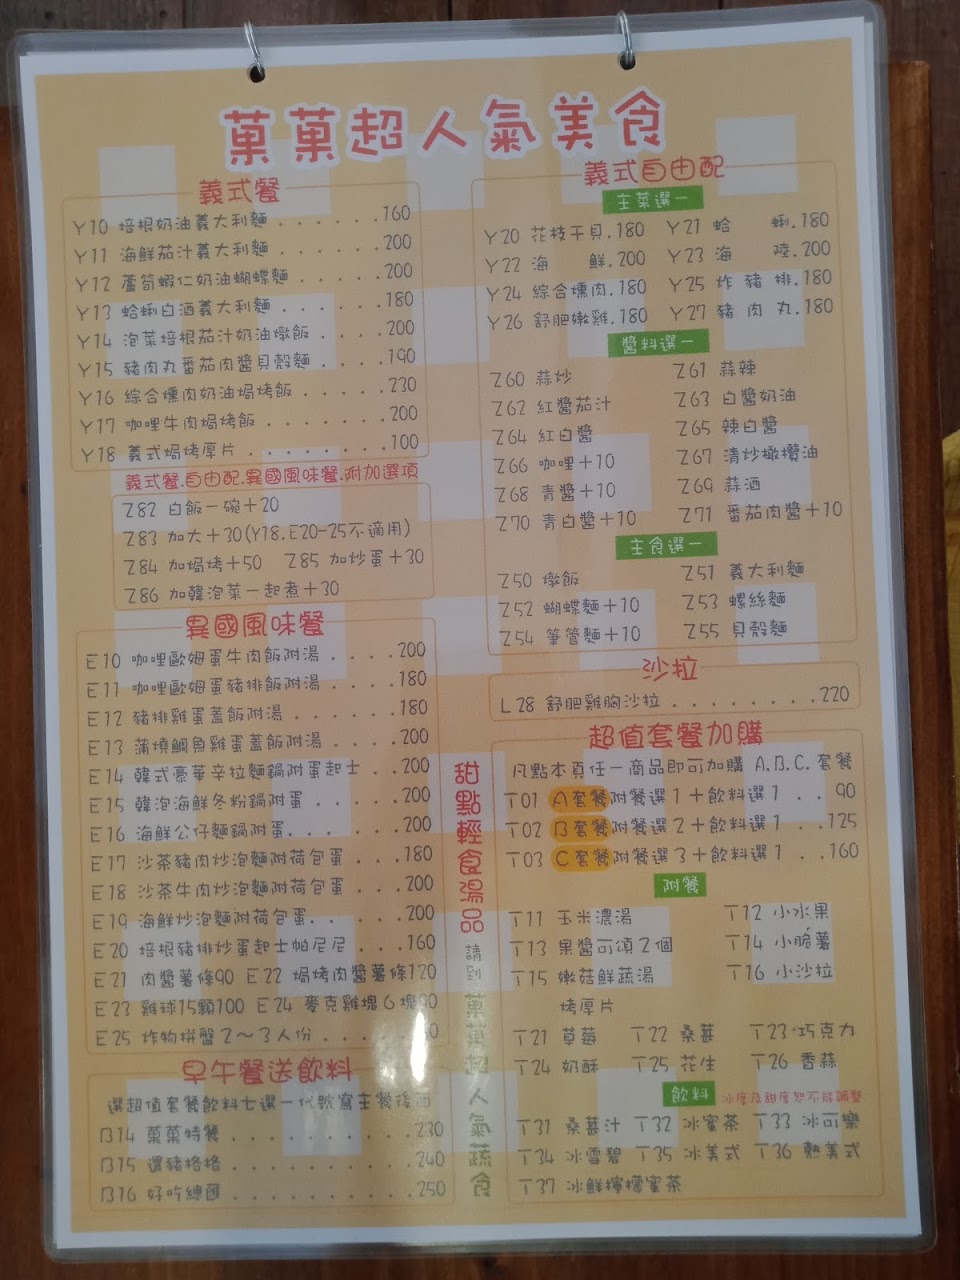 菓菓超人氣美食
義式餐
Y10 培根奶油義大利麵.......160
Y11 海鮮茄汁義大利麵.......200
Y12 蘆筍蝦仁奶油蝴蝶麵.....200
Y13 蛤蜊白酒義大利麵.......180
Y14 泡菜培根茄汁奶油燉飯....200
Y15 豬肉丸番茄肉醬貝殼麵....190
Y16 綜合燻肉奶油焗烤飯.....230
Y17 咖哩牛肉焗烤飯.......200
Y18 義式焗烤厚片........100
義式餐.自由配.異國風味餐.附加選項
Z82 白飯一碗+20
Z83 加大+30(Y18.E20-25不適用)
Z84 加焗烤+50 Z85 加炒蛋+30
Z86 加韓泡菜一起煮+30
異國風味餐
E10 咖哩歐姆蛋牛肉飯附湯....200
E11 咖哩歐姆蛋豬排飯附湯....180
E12 豬排雞蛋蓋飯附湯.....180
E13 蒲燒鯛魚雞蛋蓋飯附湯....200
E14 韓式豪華辛拉麵鍋附蛋起士..200
E15 韓泡海鮮冬粉鍋附蛋.....200
E16 海鮮公仔麵鍋附蛋......200
E17 沙茶豬肉炒泡麵附荷包蛋...180
E18 沙茶牛肉炒泡麵附荷包蛋...200
E19 海鮮炒泡麵附荷包蛋.....200
E20 培根豬排炒蛋起士帕尼尼...160
E21 肉醬薯條90 E22 焗烤肉醬薯條120
E23 雞球15顆100 E24 麥克雞塊6塊90
E25 炸物拼盤2~3人份
早午餐送飲料
選超值套餐飲料七選一代號寫主餐後面
B14 菓菓特餐..........230
B15 還豬格格..........240
B16 好吃總匯..........250
甜點輕食湯品 請到 菓菓超人氣蔬食
義式自由配
主菜選一
Y20 花枝干貝.180 Y21 蛤蜊.180
Y22 海鮮.200 Y23 海陸.200
Y24 綜合燻肉.180 Y25 炸豬排.180
Y26 舒肥嫩雞.180 Y27 豬肉丸.180
醬料選一
Z60 蒜炒 Z61 蒜辣
Z62 紅醬茄汁 Z63 白醬奶油
Z64 紅白醬 Z65 辣白醬
Z66 咖哩+10 Z67 清炒橄欖油
Z68 青醬+10 Z69 蒜酒
Z70 青白醬+10 Z71 番茄肉醬+10
主食選一
Z50 燉飯 Z51 義大利麵
Z52 蝴蝶麵+10 Z53 螺絲麵
Z54 筆管麵+10 Z55 貝殼麵
沙拉
L28 舒肥雞胸沙拉........220
超值套餐加購
凡點本頁任一商品即可加購 A.B.C.套餐
T01 A套餐附餐選1+飲料選1..90
T02 B套餐附餐選2+飲料選1..125
T03 C套餐附餐選3+飲料選1..160
附餐
T11 玉米濃湯 T12 小水果
T13 果醬可頌2個 T14 小脆薯
T15 嫩菇鮮蔬湯 T16 小沙拉
烤厚片
T21 草莓 T22 桑葚 T23 巧克力
T24 奶酥 T25 花生 T26 香蒜
飲料 冰度及甜度恕不能調整
T31 桑葚汁 T32 冰蜜茶 T33 冰可樂
T34 冰雪碧 T35 冰美式 T36 熱美式
T37 冰鮮檸檬蜜茶